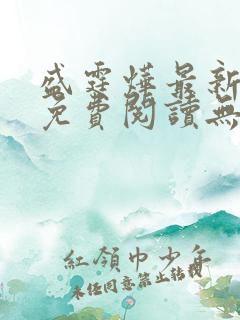 盛霆燁最新
免費閱讀無
紅領巾少年
未经同意禁止转载